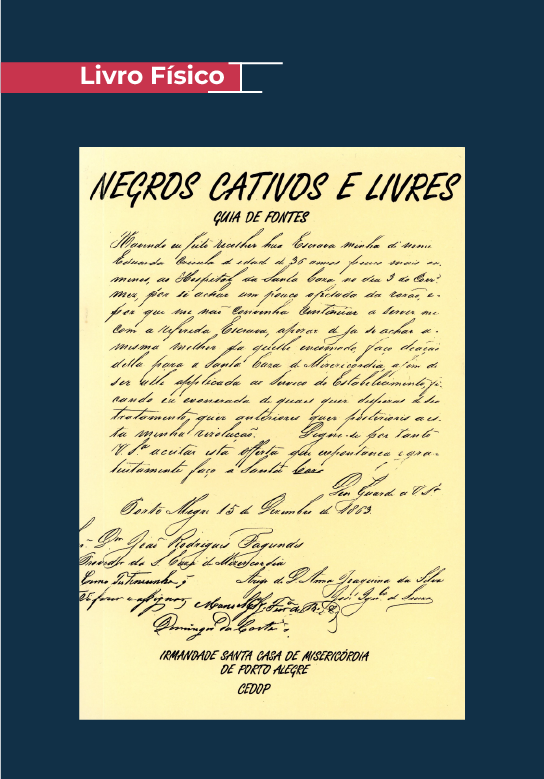 Livro Físico
NEGROS CATIVOS E LIVRES
GUIA DE FONTES
Havendo eu feito recolher hua Escrava minha de nome
Eduarda Crioula de edad de 36 annos pouco mais ou
menos, ao Hospital da Santa Caza, no dia 3 do Corr.e
mez, por se achar um pouco afectada da razão, e
por que me não Convenha Continuar a servir me
com a referida Escrava, apezar de ja se achar a
mesma melhor d'a quelle encomodo, faço doação
della para a Santa Caza de Misericordia a fim de
ser alli applicada ao Serviço do Estabelecimento, fi
cando eu exonerada de quaes quer despezas de seo
tratamento, quer anteriores quer posteriores a es
ta minha rezolução. Digne-se por tanto
V. S.ª aceitar esta offerta que espontanea e gra
tuitamente faço a Santa Caza
Deos Guarde a V. S.ª
Porto Alegre 15 de Dezembro de 1863
Dr. João Rodrigues Fagundes
Provedor da S. Caza de Misericordia
Como Testemunha, Arogo de D. Anna Joaquina da Silva
Domingos da Costa
IRMANDADE SANTA CASA DE MISERICÓRDIA
DE PORTO ALEGRE
CEDOP